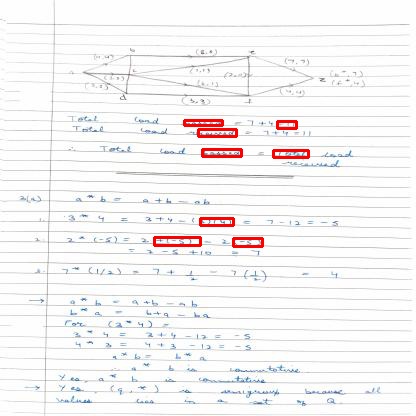 b (8,8) e
(7,7)
c
z
d (3,3) f (4,4)
Total load = 7+4
Total load = 7+4 = 11
∴ Total load = load
received
3(a) a * b = a+b - ab
1. 3 * 4 = 3+4 - = 7-12 = -5
2. 2 * (-5) = 2 +(-5) - 2 (-5)
= 2 - 5 + 10 = 7
3. 7 * (1/2) = 7 + 1/2 - 7(1/2) = 4
→ a * b = a+b - ab
b * a = b+a - ba
For (3*4) =
3 * 4 = 3+4 - 12 = -5
4 * 3 = 4+3 - 12 = -5
a * b = b * a
∴ a * b is commutative.
Yes, a * b is commutative
→ Yes, (Q, *) is semigroup because all
values lies in a set of Q.